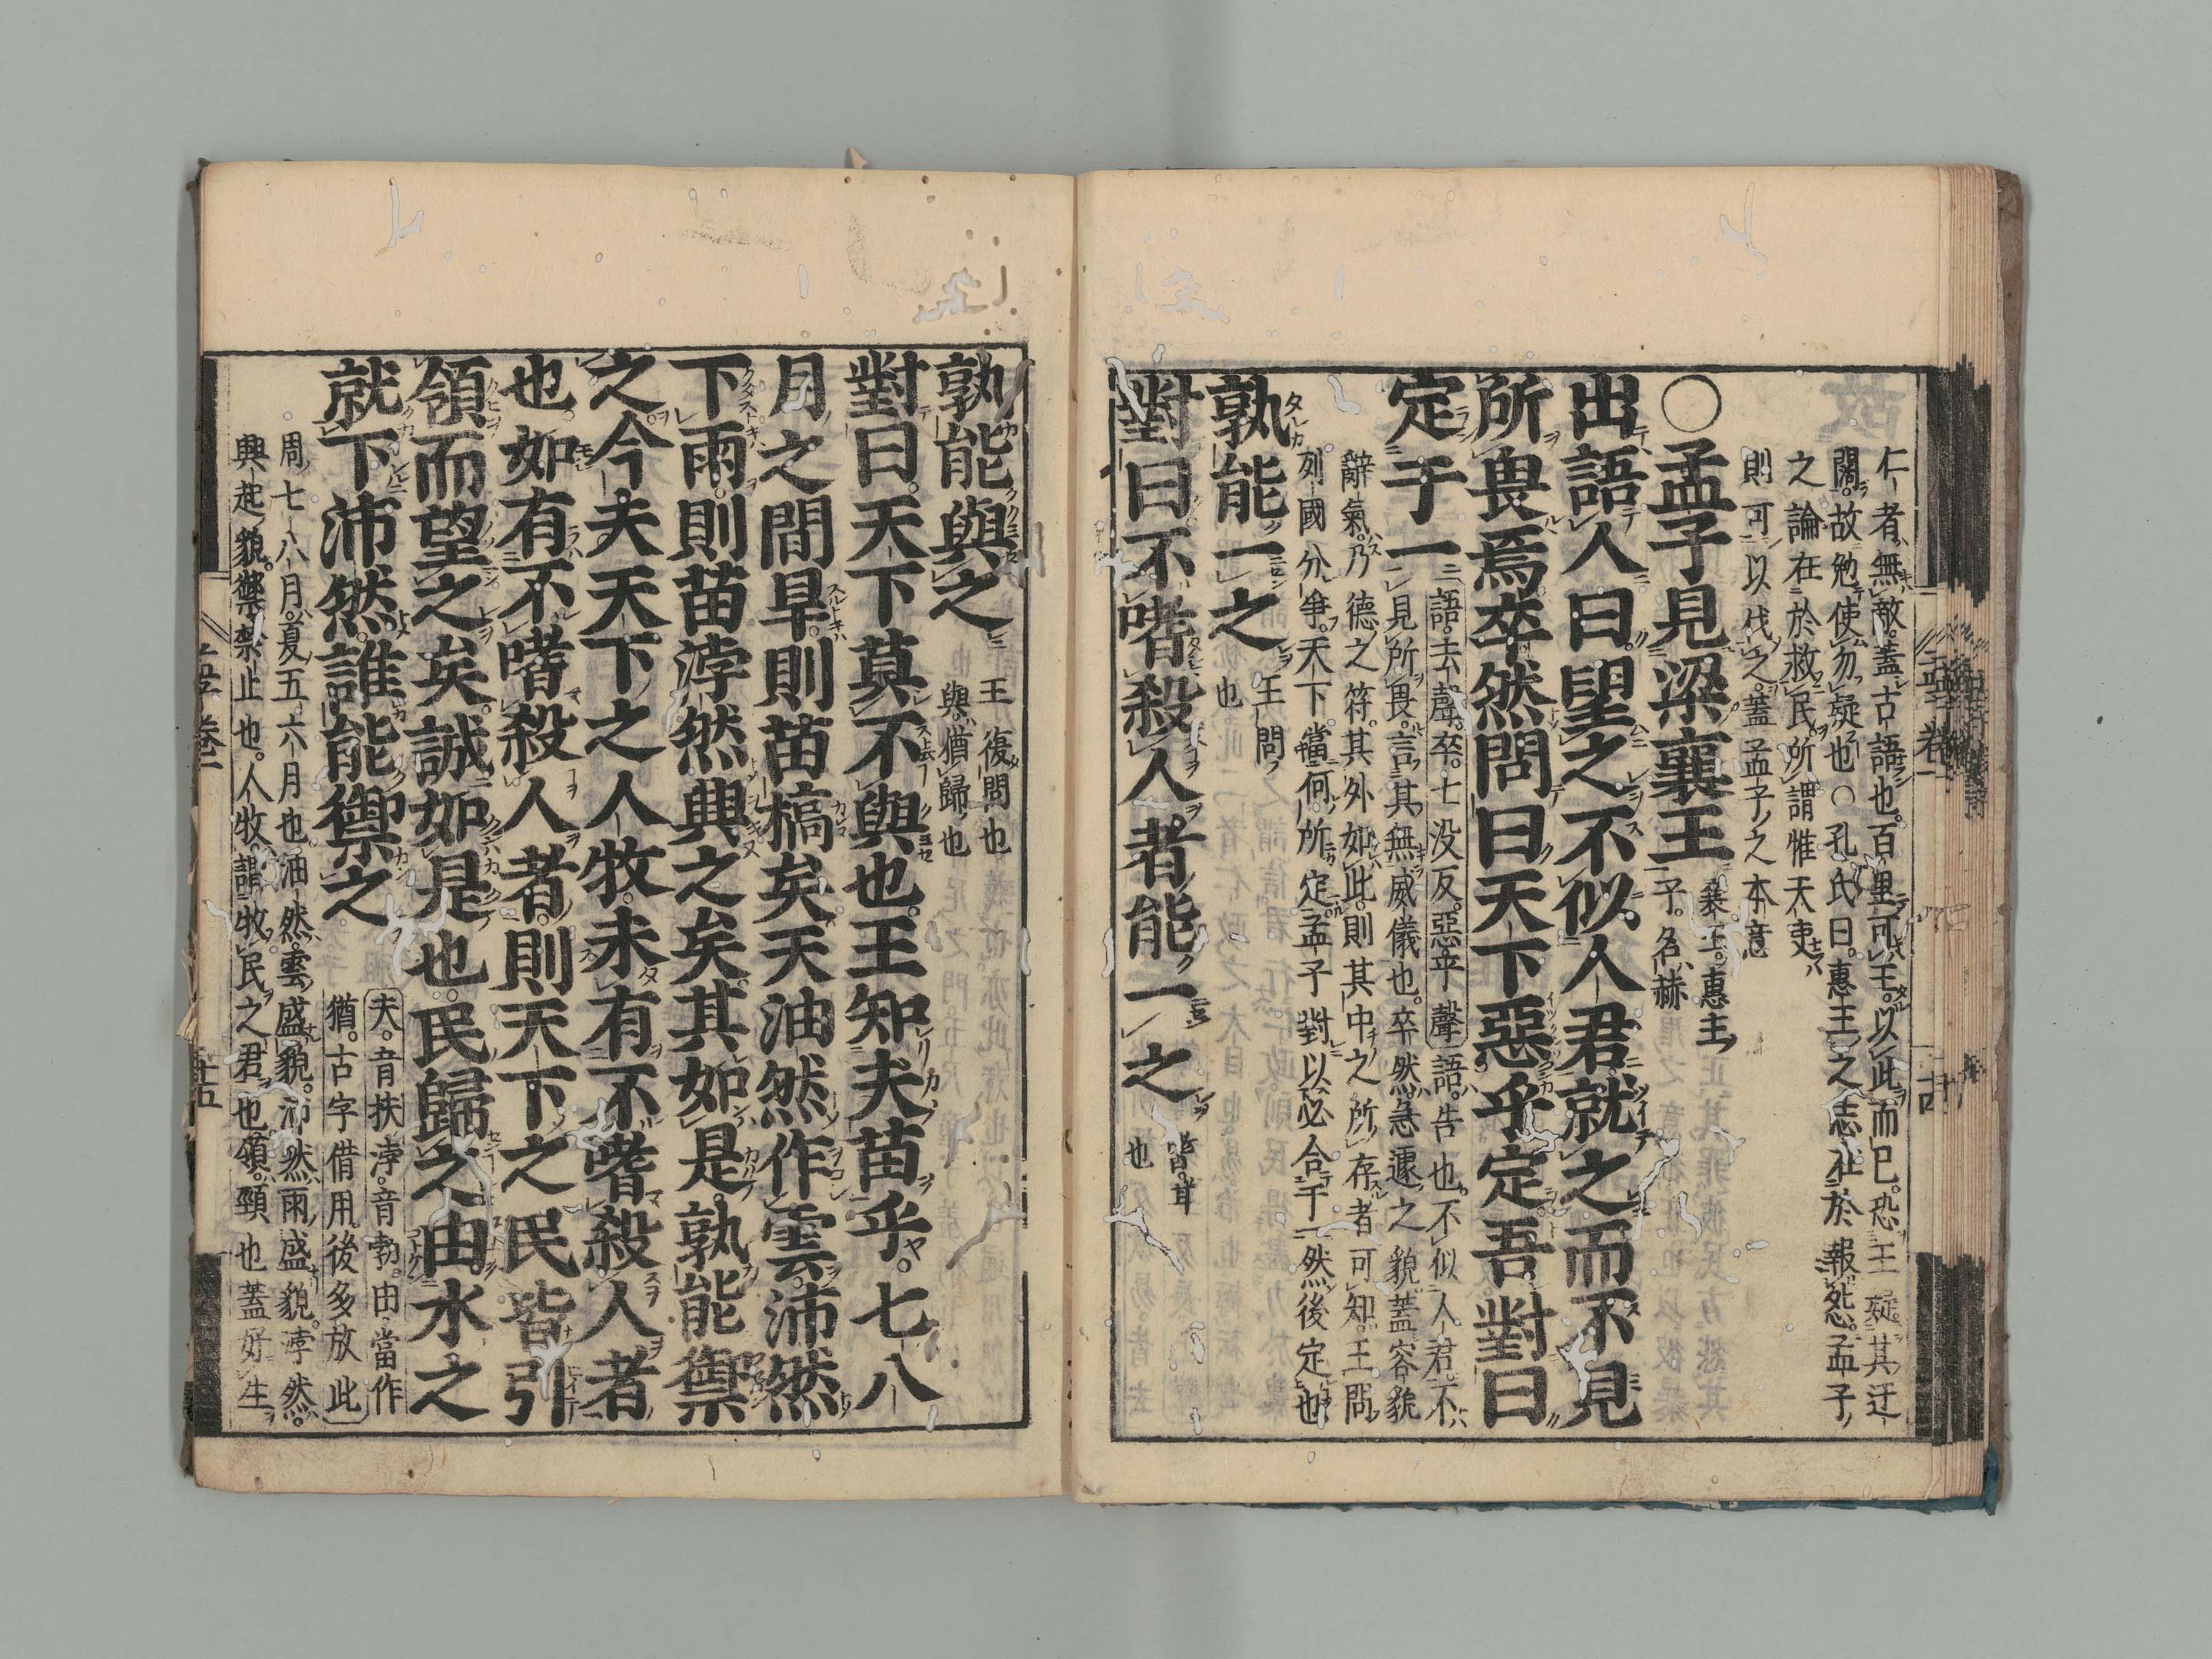 仁者無敵蓋古語也百里可王以此而已恐王疑其迂
闊故勉使勿疑也○孔氏曰惠王之志在於報怨孟子
之論在於救民所謂惟天吏
則可以伐之蓋孟子之本意
○孟子見梁襄王
襄王惠王
子名赫
出語人曰望之不似人君就之而不見
所畏焉卒然問曰天下惡乎定吾對曰
定于一
語去聲卒七没反惡平聲語告也不似人君不
見所畏言其無威儀也卒然急遽之貌蓋容貌
辭氣乃德之符其外如此則其中之所存者可知王問
列國分爭天下當何所定孟子對以必合于一然後定也
孰能一之
王問
也
對曰不嗜殺人者能一之
嗜甘
也
孰能與之
王復問也
與猶歸也
對曰天下莫不與也王知夫苗乎七八
月之間旱則苗槁矣天油然作雲沛然
下雨則苗浡然興之矣其如是孰能禦
之今夫天下之人牧未有不嗜殺人者
也如有不嗜殺人者則天下之民皆引
領而望之矣誠如是也民歸之由水之
就下沛然誰能禦之
夫音扶浡音勃由當作
猶古字借用後多放此
周七八月夏五六月也油然雲盛貌沛然雨盛貌浡然
興起貌禦禁止也人牧謂牧民之君也領頸也蓋好生